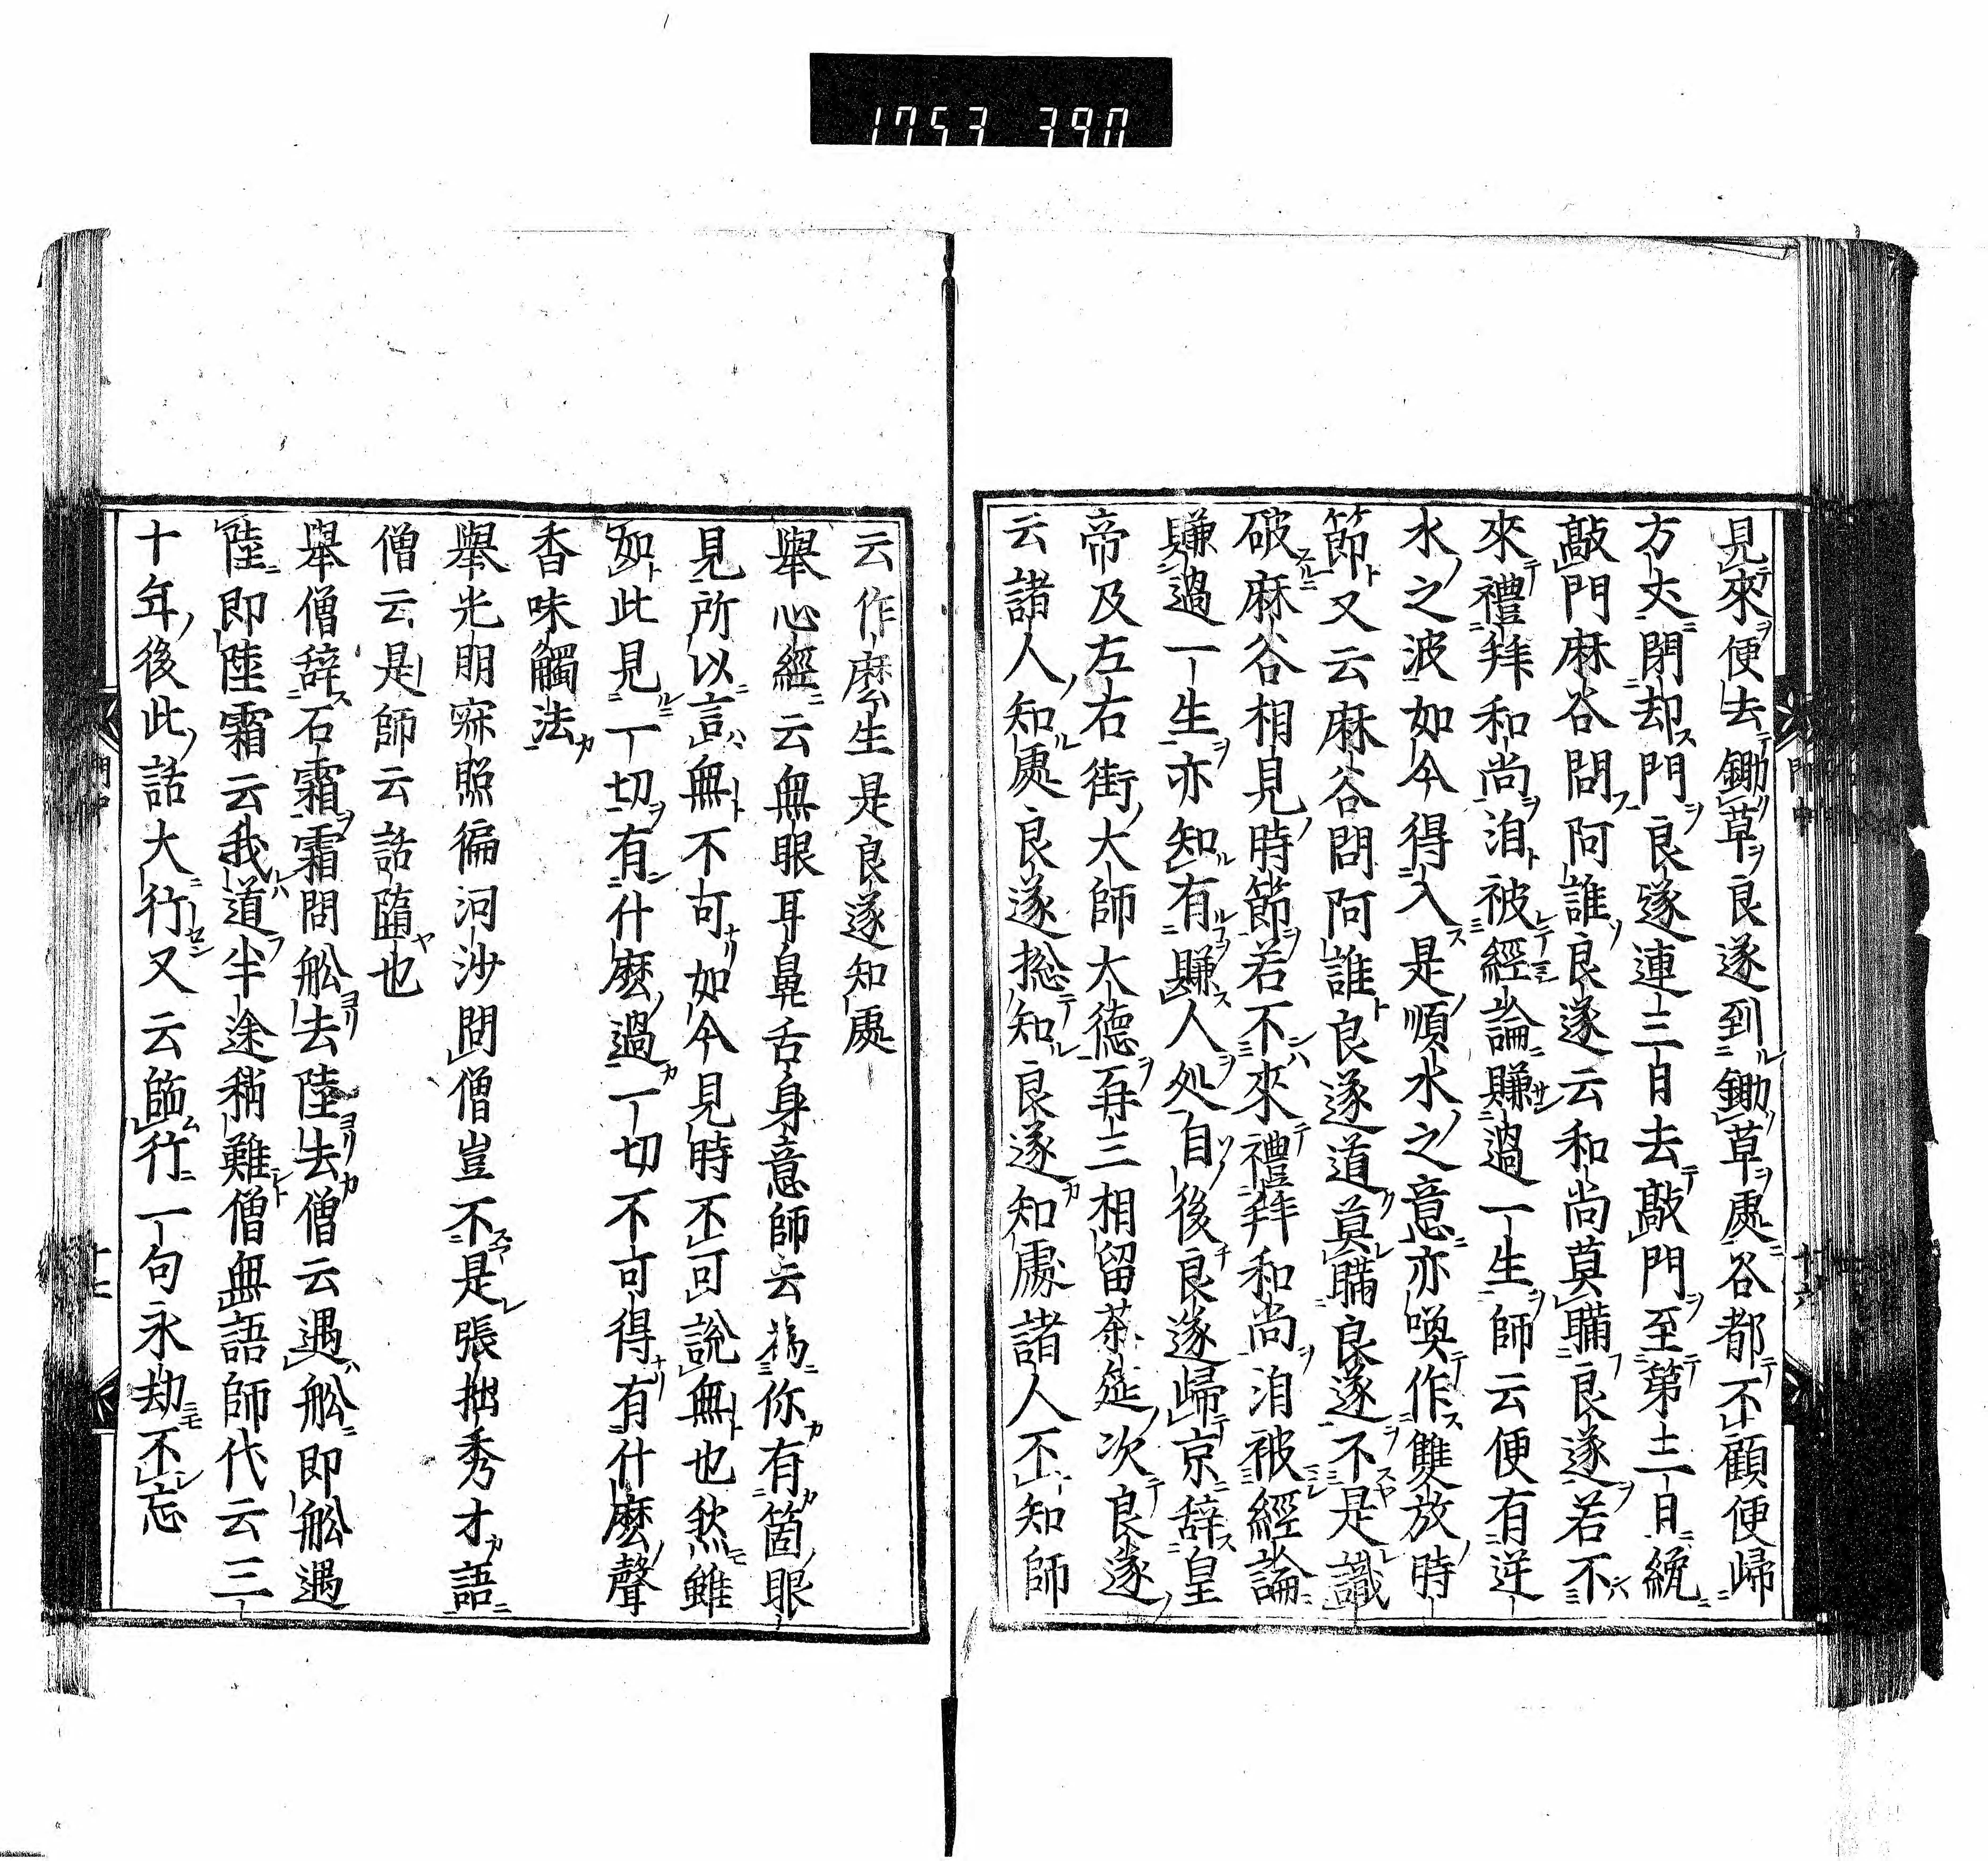 1753 390
見來便去鋤草良遂到鋤草處谷都不顧便歸
方丈閉却門良遂連三日去敲門至第三日纔
敲門麻谷問阿誰良遂云和尚莫瞞良遂若不
來禮拜和尚洎被經論賺過一生師云便有逆
水之波如今得入是順水之意亦喚作雙放時
節又云麻谷問阿誰良遂道莫瞞良遂不是識
破麻谷相見時節若不來禮拜和尚洎被經論
賺過一生亦知有賺人处自後良遂歸京辞皇
帝及左右街大師大德再三相留茶筵次良遂
云諸人知處良遂揔知良遂知處諸人不知師
云作麽生是良遂知處
舉心經云無眼耳鼻舌身意師云為你有箇眼
見所以言無不可如今見時不可說無也然雖
如此見一切有什麽過一切不可得有什麽聲
香味觸法
舉光明寂照徧河沙問僧豈不是張拙秀才語
僧云是師云話墮也
舉僧辞石霜霜問舩去陸去僧云遇舩即舩遇
陸即陸霜云我道半途稍難僧無語師代云三
十年後此話大行又云師行一句永劫不忘